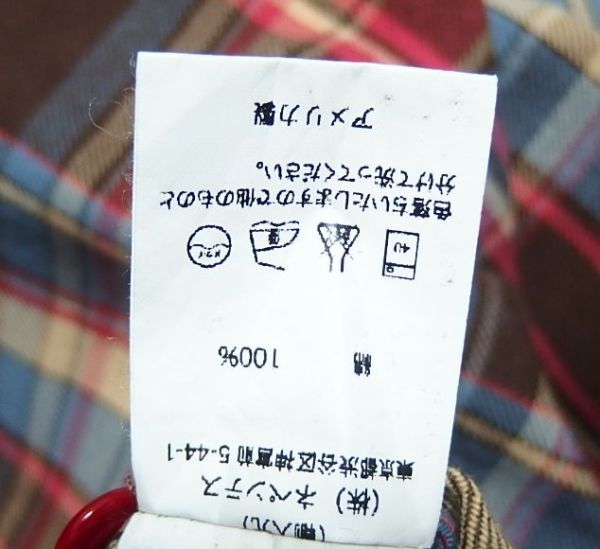 (輸入元)
(株) ネペンテス
東京都渋谷区神宮前5-44-1
綿 100%
40
中
ドライ
色落ちいたしますので他のものと
分けて洗ってください。
アメリカ製